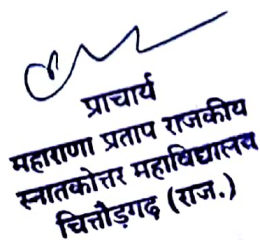 प्राचार्य
महाराणा प्रताप राजकीय
स्नातकोत्तर महाविद्यालय
चित्तौड़गढ़ (राज.)